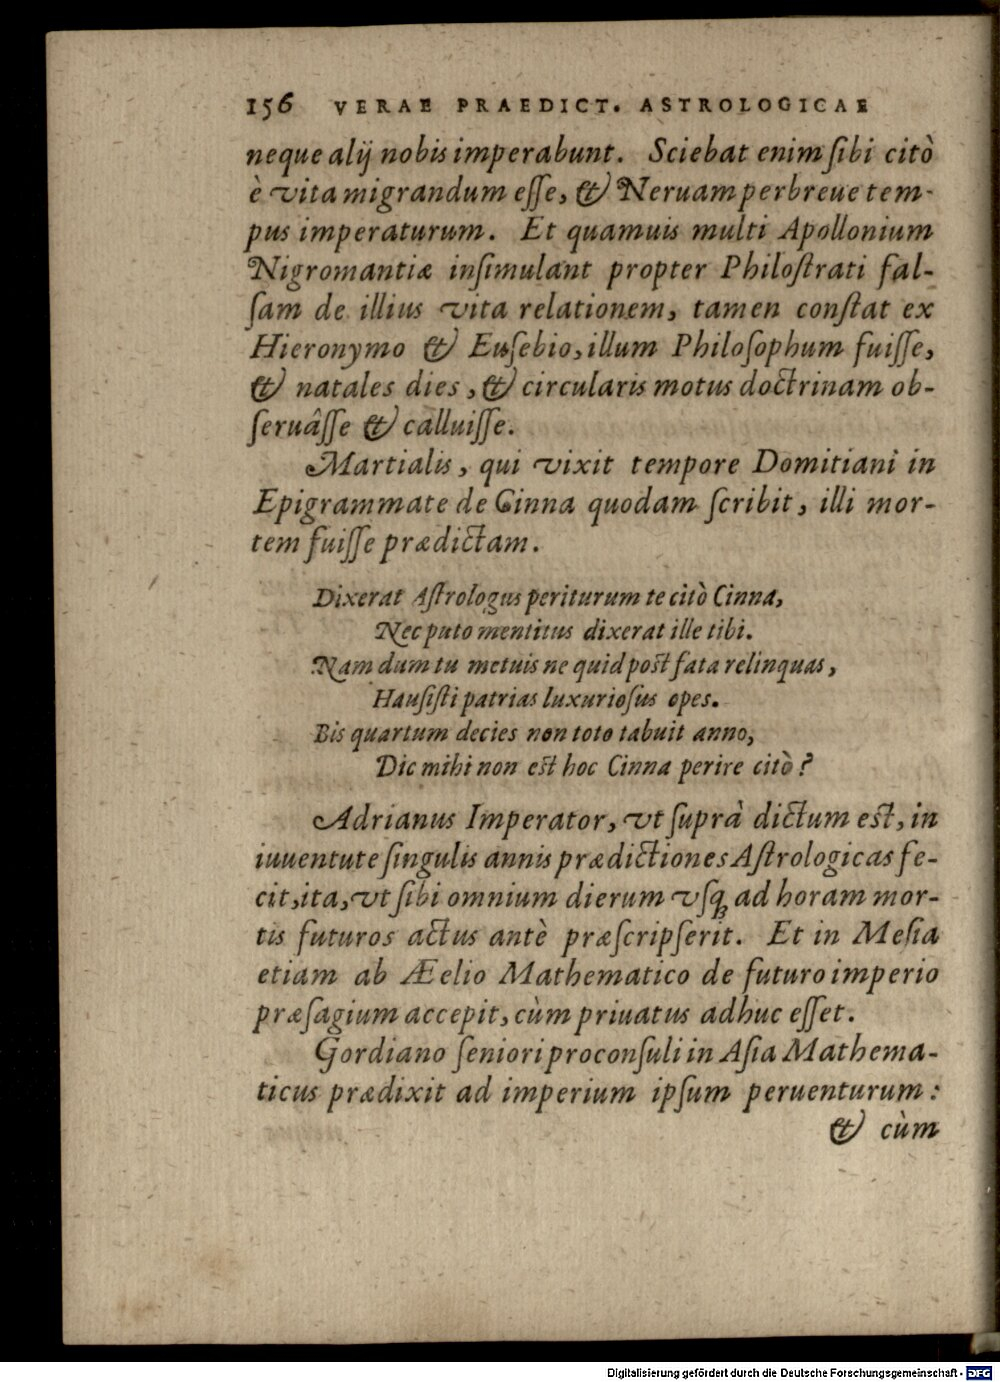 156 VERAE PRAEDICT. ASTROLOGICAE
neque alij nobis imperabunt. Sciebat enim ſibi citò
è vita migrandum eſſe, & Neruam perbreue tem-
pus imperaturum. Et quamuis multi Apollonium
Nigromantiæ inſimulant propter Philoſtrati fal-
ſam de illius vita relationem, tamen conſtat ex
Hieronymo & Euſebio, illum Philoſophum fuiſſe,
& natales dies, & circularis motus doctrinam ob-
ſeruâſſe & calluiſſe.
Martialis, qui vixit tempore Domitiani in
Epigrammate de Cinna quodam ſcribit, illi mor-
tem fuiſſe prædictam.
Dixerat Aſtrologus periturum te citò Cinna,
Nec puto mentitus dixerat ille tibi.
Nam dum tu metuis ne quid poſt fata relinquas,
Hauſiſti patrias luxurioſus opes.
Bis quartum decies non toto tabuit anno,
Dic mihi non eſt hoc Cinna perire citò?
Adrianus Imperator, vt ſuprà dictum eſt, in
iuuentute ſingulis annis prædictiones Aſtrologicas fe-
cit, ita, vt ſibi omnium dierum vſq; ad horam mor-
tis futuros actus antè præſcripſerit. Et in Meſia
etiam ab Æelio Mathematico de futuro imperio
præſagium accepit, cùm priuatus adhuc eſſet.
Gordiano ſeniori proconſuli in Aſia Mathema-
ticus prædixit ad imperium ipſum peruenturum:
& cùm
Digitalisierung gefördert durch die Deutsche Forschungsgemeinschaft - DFG